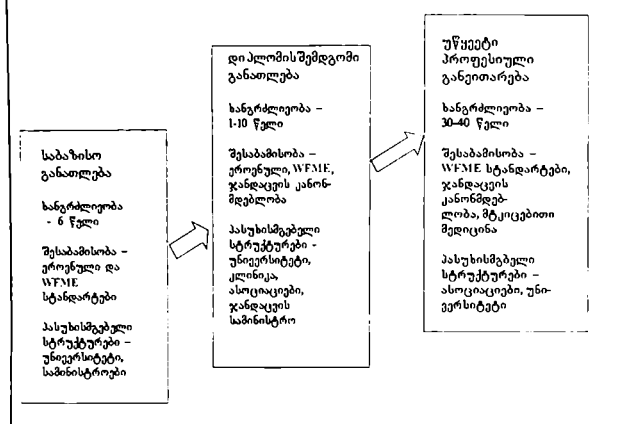 საბაზისო
განათლება
ხანგრძლივობა
- 6 წელი
შესაბამისობა –
ეროვნული და
WFME
სტანდარტები
პასუხისმგებელი
სტრუქტურები –
უნივერსიტეტი,
სამინისტროები
დიპლომისშემდგომი
განათლება
ხანგრძლივობა –
1-10 წელი
შესაბამისობა –
ეროვნული, WFME,
ჯანდაცვის კანონ-
მდებლობა
პასუხისმგებელი
სტრუქტურები -
უნივერსიტეტი,
კლინიკა,
ასოციაციები,
ჯანდაცვის
სამინისტრო
უწყვეტი
პროფესიული
განვითარება
ხანგრძლივობა –
30-40 წელი
შესაბამისობა –
WFME სტანდარტები,
ჯანდაცვის
კანონმდებ-
ლობა, მტკიცებითი
მედიცინა
პასუხისმგბელი
სტრუქტურები –
ასოციაციები, უნი-
ვერსიტეტი